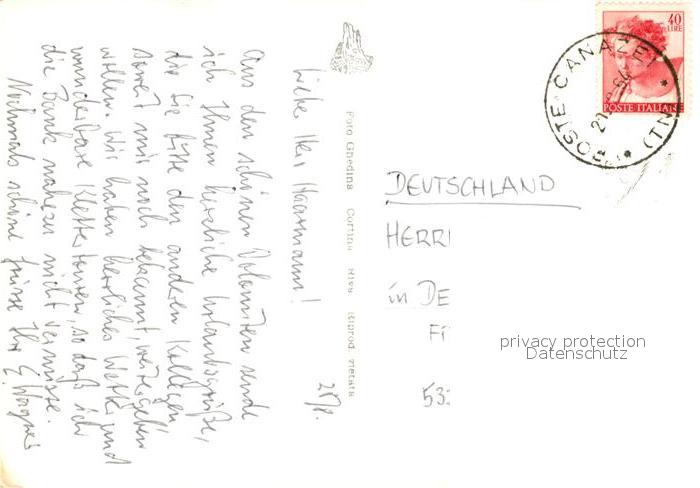 28/8.
Liebe Herr Haarmann!
Aus den schönen Dolomiten sende
ich Ihnen herzliche Urlaubsgrüße,
die Sie bitte den anderen Kollegen,
soweit mir noch bekannt, weitergeben
wollen. Wir haben herrliches Wetter und
wunderbare Klettertouren, so daß ich
die Bank nahezu nicht vermisse.
Nochmals schöne Grüsse Ihr E. Wagner
Foto Ghedina Cortina Riva Riprod. vietata
40
LIRE
POSTE ITALIANE
POSTE CANAZEI * (TN) *
DEUTSCHLAND
HERR
in DE
F
53
privacy protection
Datenschutz